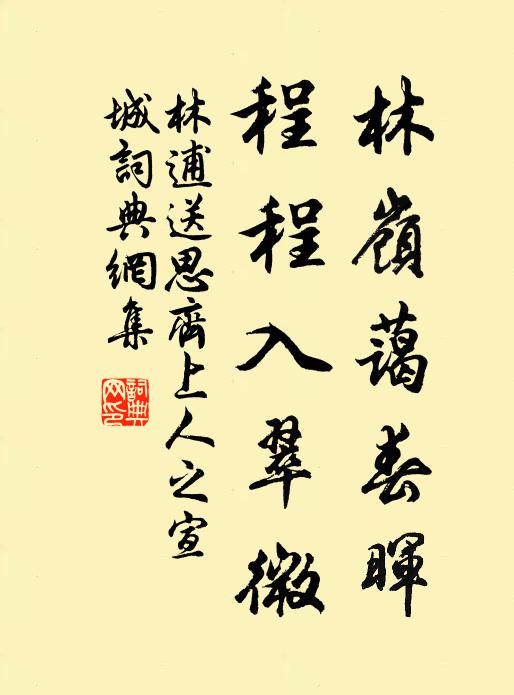 林嶺藹春暉
程程入翠微
林逋送思齊上人之宣
城詞典網集
詞典
网印